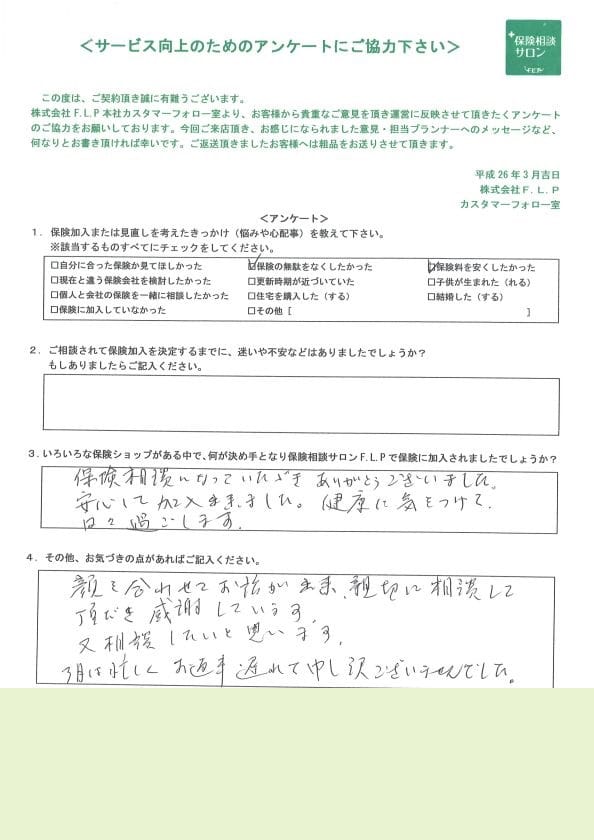 ＜サービス向上のためのアンケートにご協力下さい＞
保険相談
サロン
F.L.P
この度は、ご契約頂き誠に有難うございます。
株式会社F.L.P本社カスタマーフォロー室より、お客様から貴重なご意見を頂き運営に反映させて頂きたくアンケート
のご協力をお願いしております。今回ご来店頂き、お感じになられました意見・担当プランナーへのメッセージなど、
何なりとお書き頂ければ幸いです。ご返送頂きましたお客様へは粗品をお送りさせて頂きます。
平成26年3月吉日
株式会社F.L.P
カスタマーフォロー室
＜アンケート＞
1．保険加入または見直しを考えたきっかけ（悩みや心配事）を教えて下さい。
※該当するものすべてにチェックをしてください。
□自分に合った保険か見てほしかった ☑保険の無駄をなくしたかった ☑保険料を安くしたかった
□現在と違う保険会社を検討したかった □更新時期が近づいていた □子供が生まれた（れる）
□個人と会社の保険を一緒に相談したかった □住宅を購入した（する） □結婚した（する）
□保険に加入していなかった □その他［ ］
2．ご相談されて保険加入を決定するまでに、迷いや不安などはありましたでしょうか？
もしありましたらご記入ください。
3．いろいろな保険ショップがある中で、何が決め手となり保険相談サロンF.L.Pで保険に加入されましたでしょうか？
保険相談になっていただき ありがとうございました。
安心して加入出来ました。健康に気をつけて、
日々過ごします。
4．その他、お気づきの点があればご記入ください。
顔を合わせてお話が出来、親切に相談して
頂だき感謝しています。
又相談したいと思います。
3月は忙しくお返事遅れて申し訳ございませんでした。